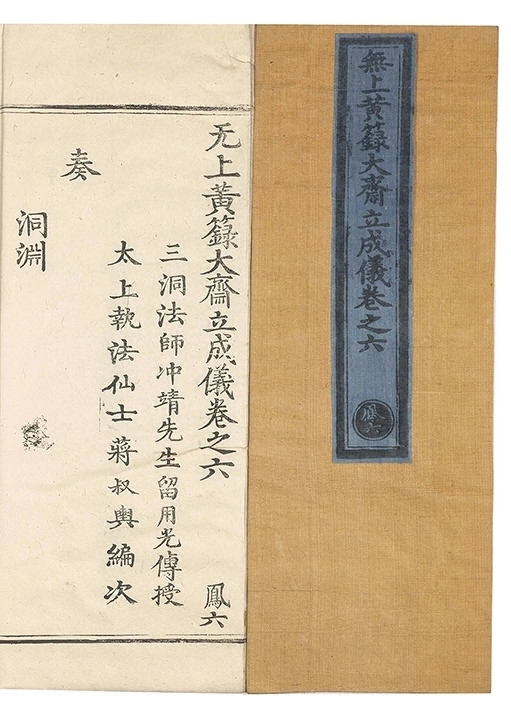 無上黃籙大齋立成儀卷之六
鳳六
无上黃籙大齋立成儀卷之六 鳳六
三洞法師冲靖先生留用光傳授
太上執法仙士蔣叔輿編次
奏
洞淵